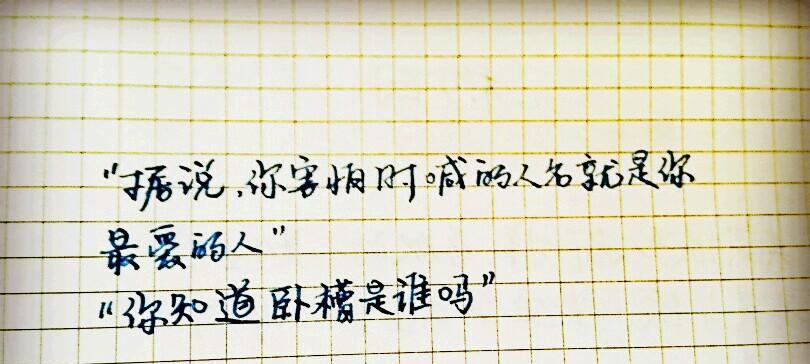 “据说,你害怕时喊的人名就是你
最爱的人”
“你知道卧槽是谁吗”